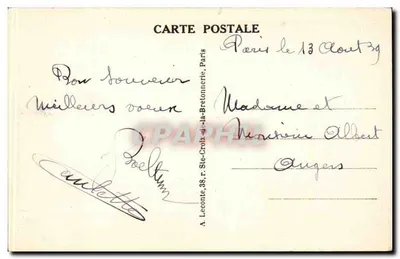 CARTE POSTALE
Paris le 13 Aout 39
Bon souvenir
Meilleurs voeux
Madame et
Monsieur Albert
Angers
Paulette
A. Leconte, 38, r. Ste-Croix-de-la-Bretonnerie, Paris